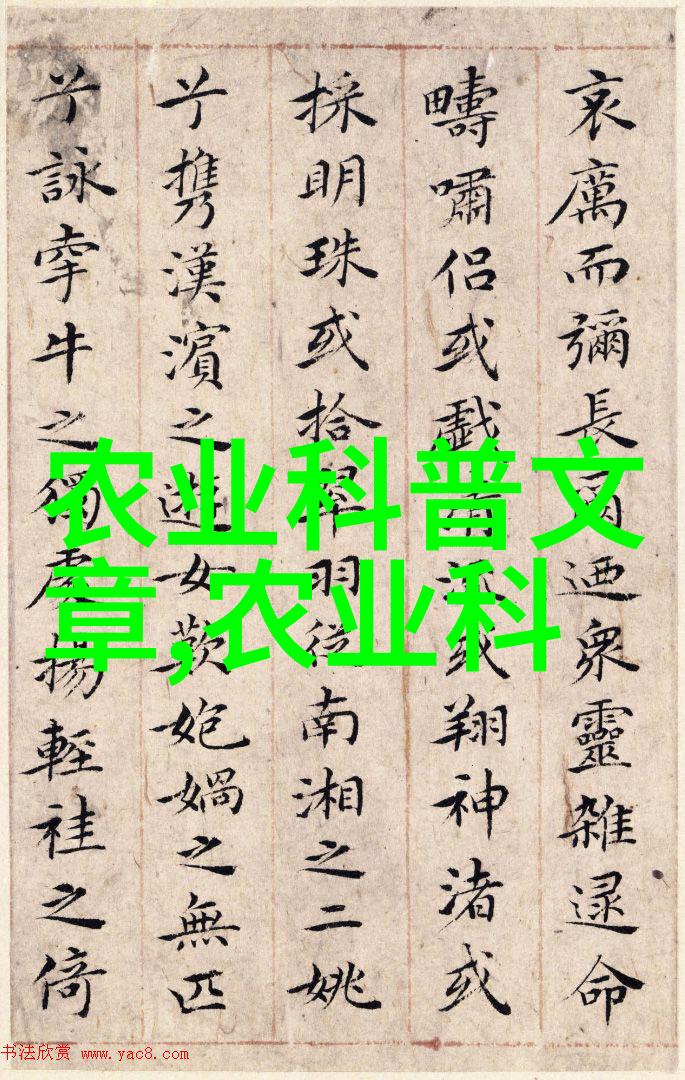 哀厲而彌長爾迺衆靈雜遝命
疇嘯侶或戲或翔神渚或
採明珠或拾翠羽從南湘之二姚
兮携漢濱之遊女歎媧之無匹
兮詠牽牛之獨處揚輕袿之倚
农业科普文
章,农业科
书法欣赏 www.yac8.com